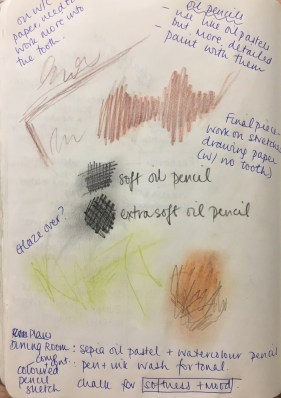 on w/c
paper, need to
work more into
the tooth.
oil pencils
- use like oil pastels
- but more detailed
- paint with them
Final piece
work on
drawing paper
(w/ no tooth)
soft oil pencil
extra soft oil pencil
Glaze over?
Dining Room: sepia oil pastel + watercolour pencil
pen + ink wash for tonal.
coloured
pencil
sketch
chalk for softness + mood.